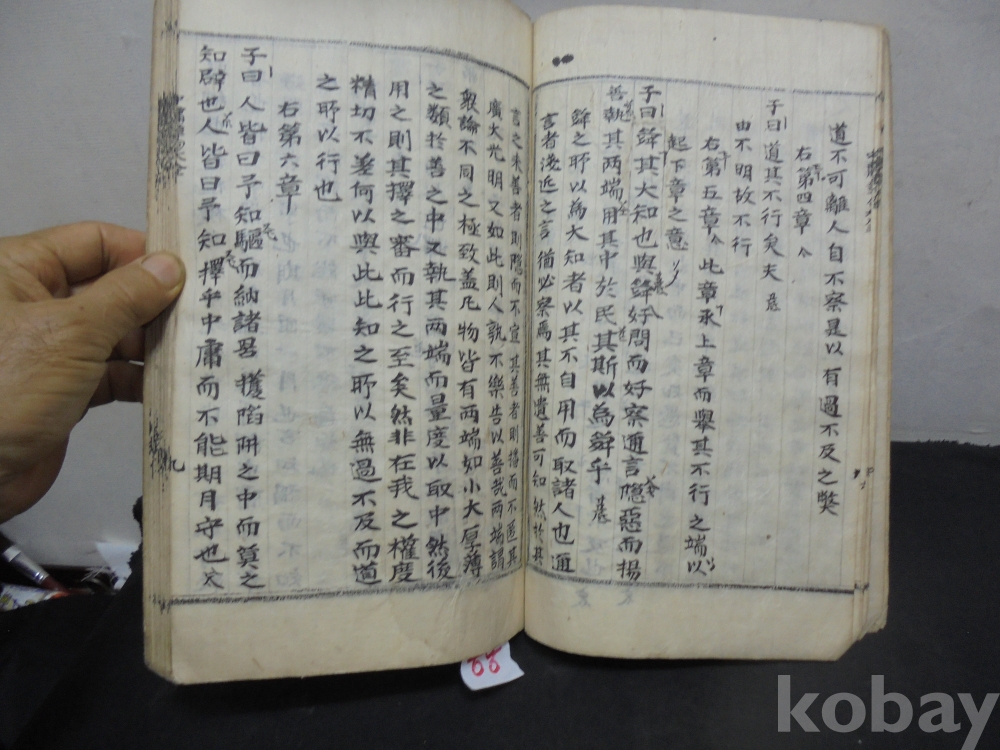 道不可離人自不察是以有過不及之獘
右第四章
子曰道其不行矣夫
由不明故不行
右第五章 此章承上章而舉其不行之端以
起下章之意
子曰舜其大知也與舜好問而好察迩言隱惡而揚
善執其兩端用其中於民其斯以為舜乎
舜之所以為大知者以其不自用而取諸人也迩
言者淺近之言猶必察焉其無遺善可知然於其
言之未善者則隱而不宣其善者則播而不匿其
廣大光明又如此則人孰不樂告以善哉兩端謂
衆論不同之極致盖凡物皆有兩端如小大厚薄
之類於善之中又執其兩端而量度以取中然後
用之則其擇之審而行之至矣然非在我之權度
精切不差何以與此此知之所以無過不及而道
之所以行也
右第六章
子曰人皆曰予知驅而納諸罟擭陷阱之中而莫之
知辟也人皆曰予知擇乎中庸而不能期月守也
九
88
kobay